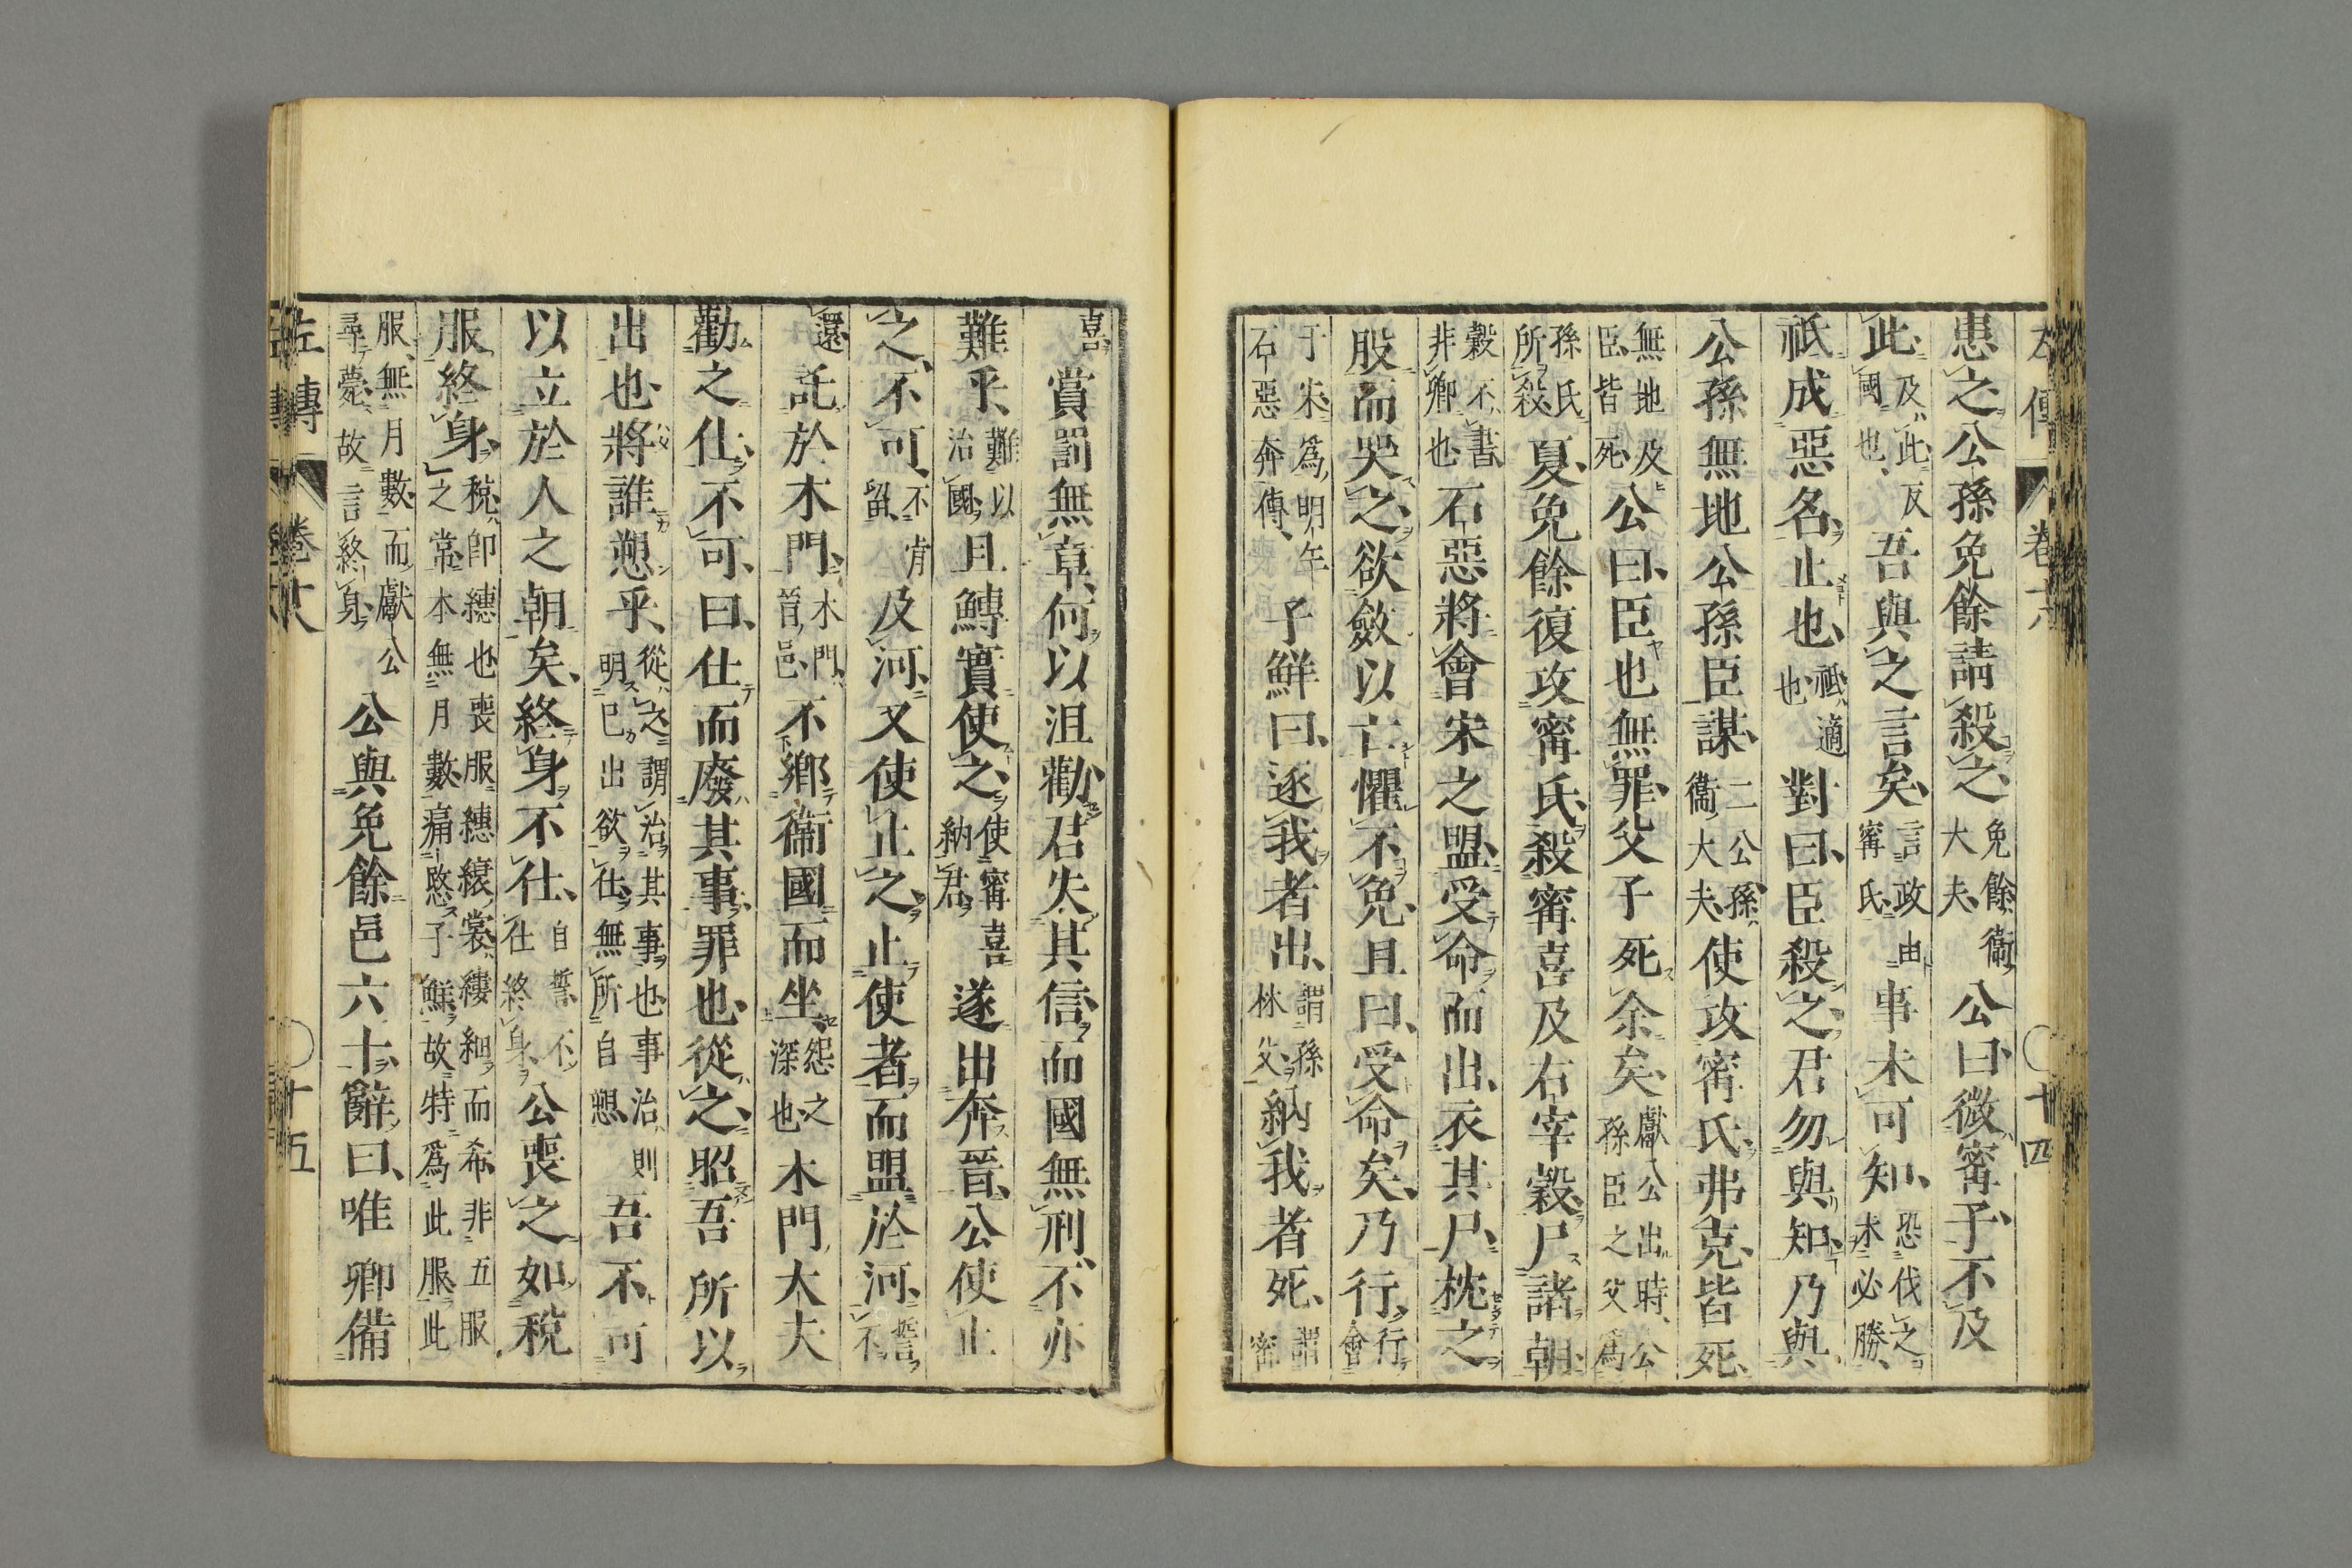 患之公孫免餘請殺之免餘衞大夫公曰微甯子不及
此及此反國也吾與之言矣言政由甯氏事未可知恐伐之未必勝
祇成惡名止也祇適也對曰臣殺之君勿與知乃與
公孫無地公孫臣謀二公孫衞大夫使攻甯氏弗克皆死
無地及臣皆死公曰臣也無罪父子死余矣獻公出時公孫臣之父爲
孫氏所殺夏免餘復攻甯氏殺甯喜及右宰穀尸諸朝
穀不書非卿也石惡將會宋之盟受命而出衣其尸枕之
股而哭之欲斂以亡懼不免且曰受命矣乃行行會
于宋爲明年石惡奔傳子鮮曰逐我者出謂孫林父納我者死謂甯
左傳 卷十八 十四
喜賞罰無章何以沮勸君失其信而國無刑不亦
難乎難以治國且鱄實使之使甯喜納君遂出奔晉公使止
之不可不肯留及河又使止之止使者而盟於河誓不
還託於木門木門晉邑不鄉衞國而坐怨之深也木門大夫
勸之仕不可曰仕而廢其事罪也從之昭吾所以
出也將誰愬乎從之謂治其事也事治則明己出欲仕無所自愬吾不可
以立於人之朝矣終身不仕自誓不仕終身公喪之如稅
服終身稅卽繐也喪服繐縗裳縷細而希非五服之常本無月數痛愍子鮮故特爲此服此
服無月數而獻公尋薨故言終身公與免餘邑六十辭曰唯卿備
左傳 卷十八 十五